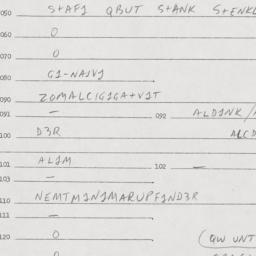 050 S+AFJ QBUT S+ANK S+ENKL
060 0
070 0
080 GJ-NAJVJ
090 ZOMALCIGJGA+VJT
091 — 092 ALDJNK/
100 D3R ALCD
101 ALJM 102 —
103 —
110 NEMTMJNJMARUPFJND3R
111 —
120 0 (QW UNT
0